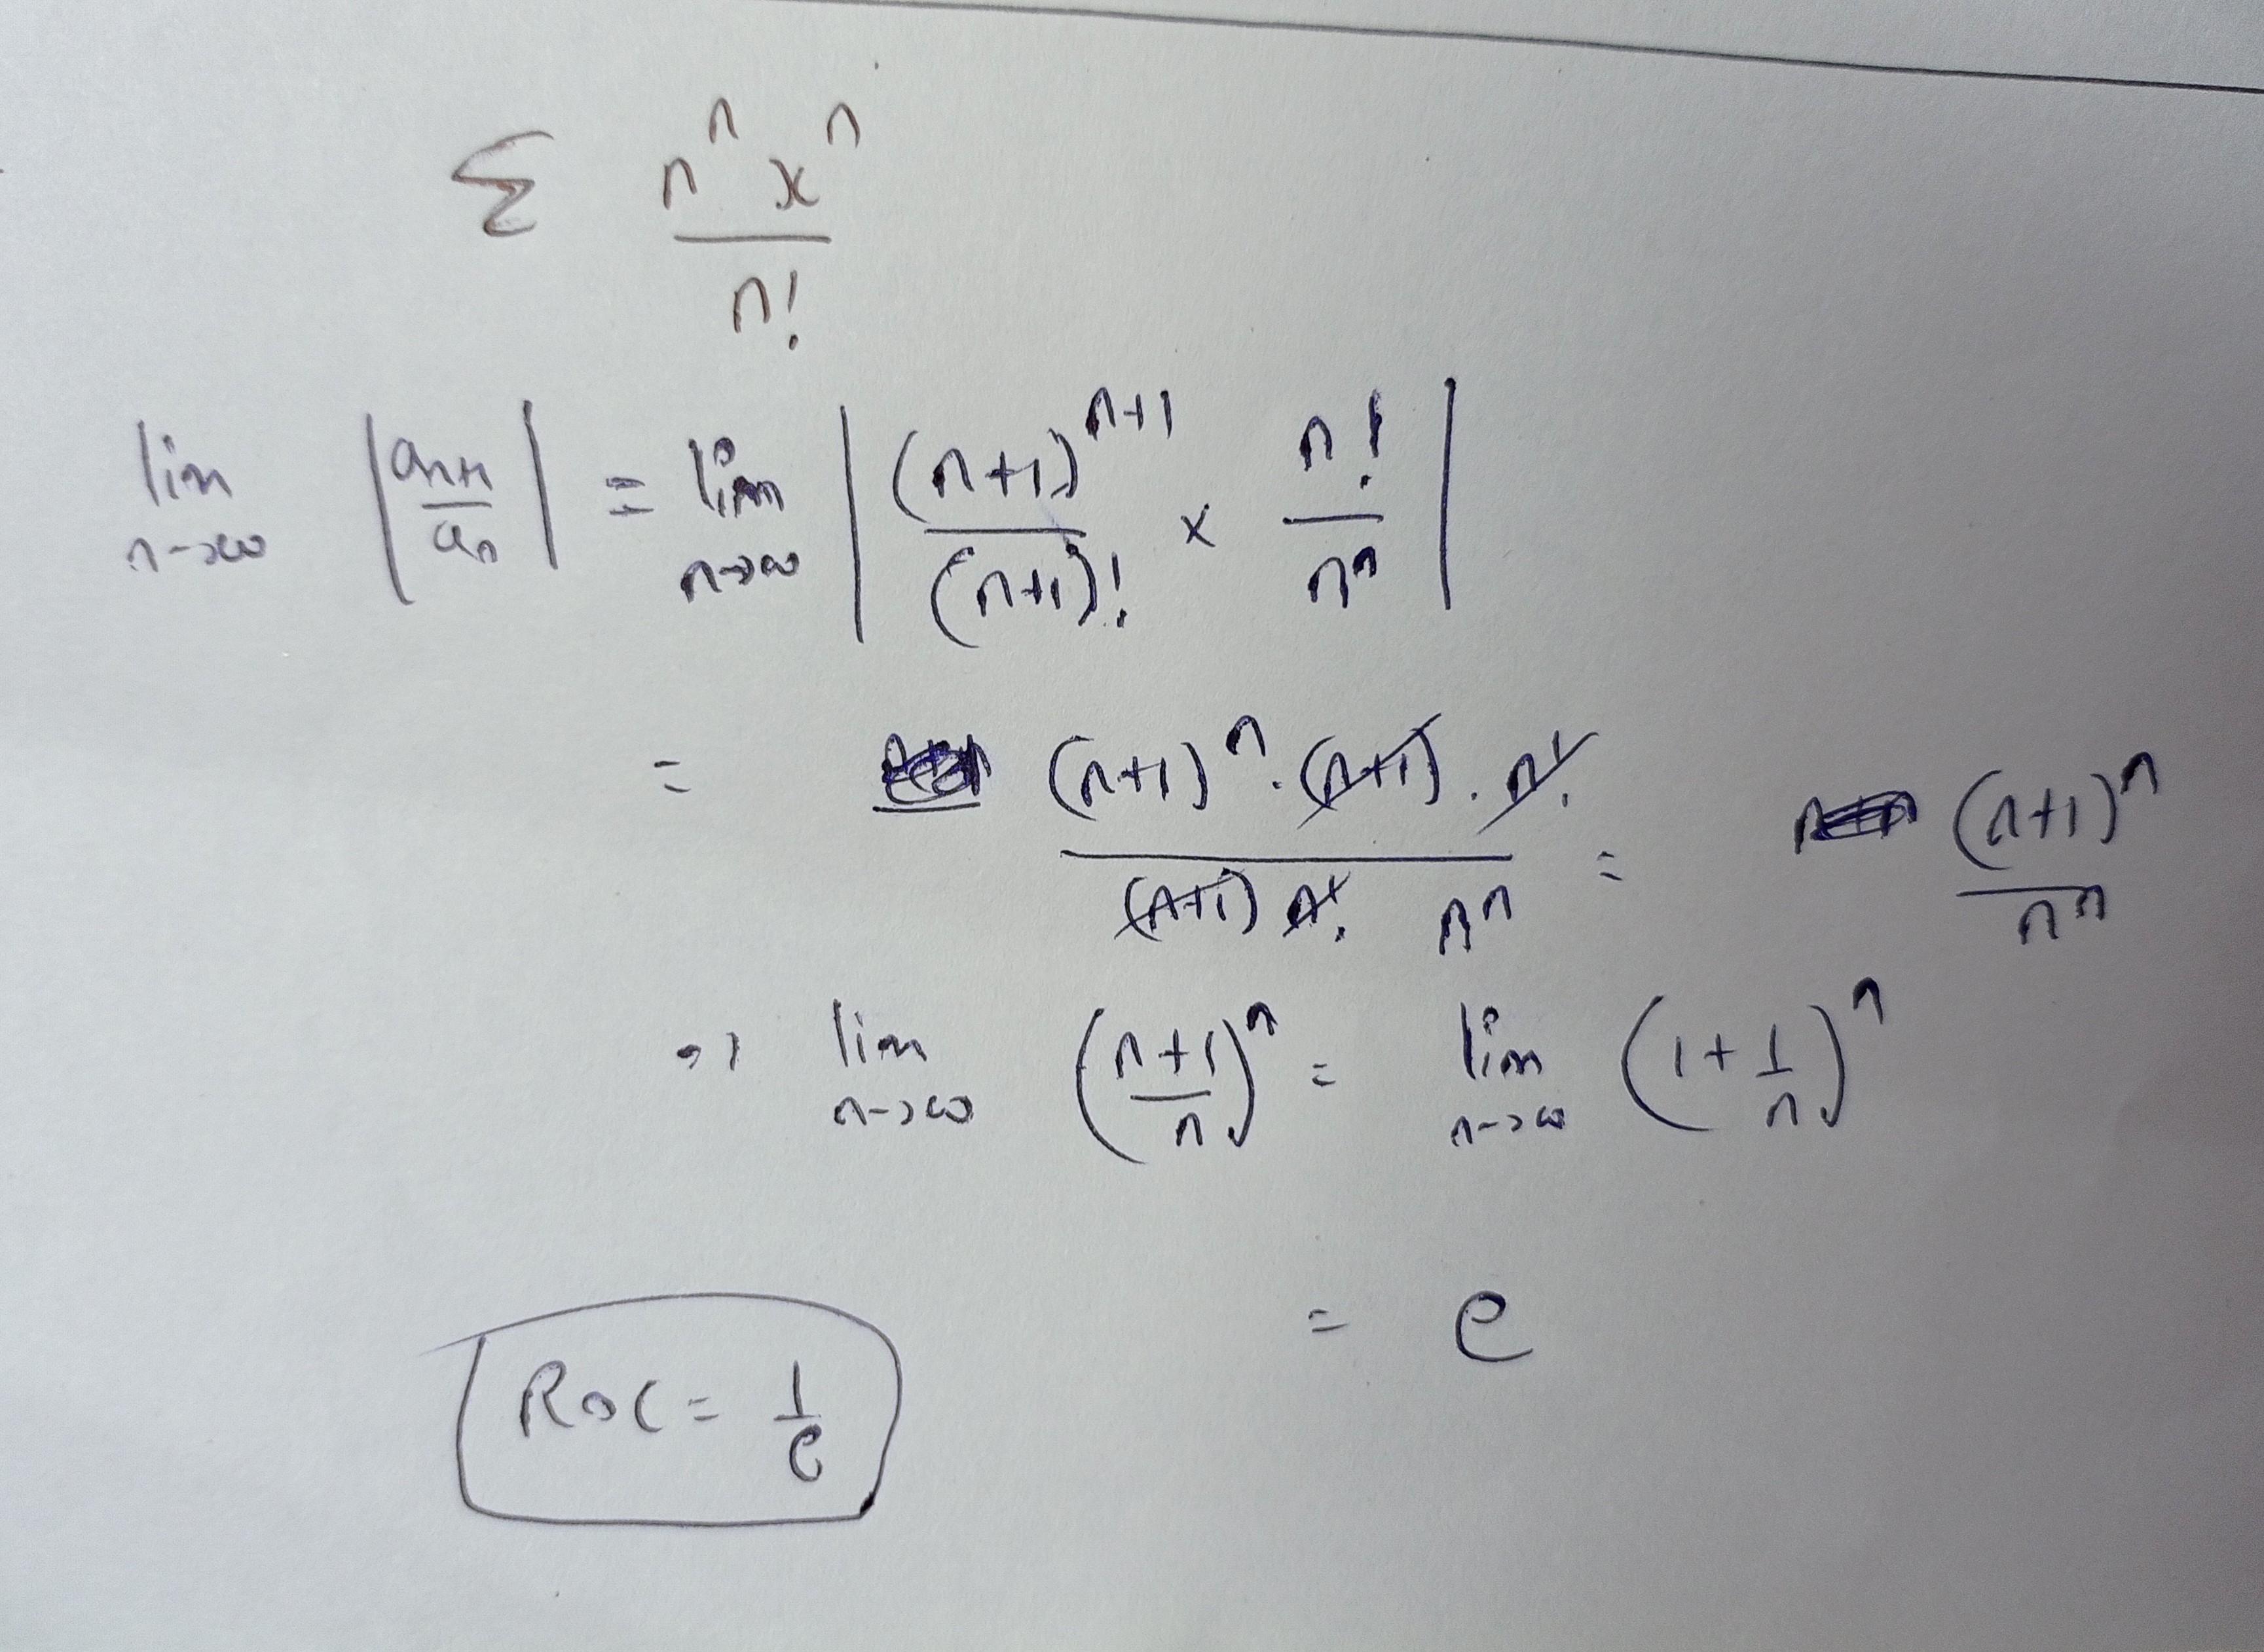 Σ n^n x^n / n!
lim n→∞ |a_{n+1} / a_n| = lim n→∞ | (n+1)^{n+1} / (n+1)! × n! / n^n |
= (n+1)^n . (n+1) . n! / (n+1) n! n^n = (n+1)^n / n^n
⇒ lim n→∞ ((n+1) / n)^n = lim n→∞ (1 + 1/n)^n
= e
ROC = 1/e